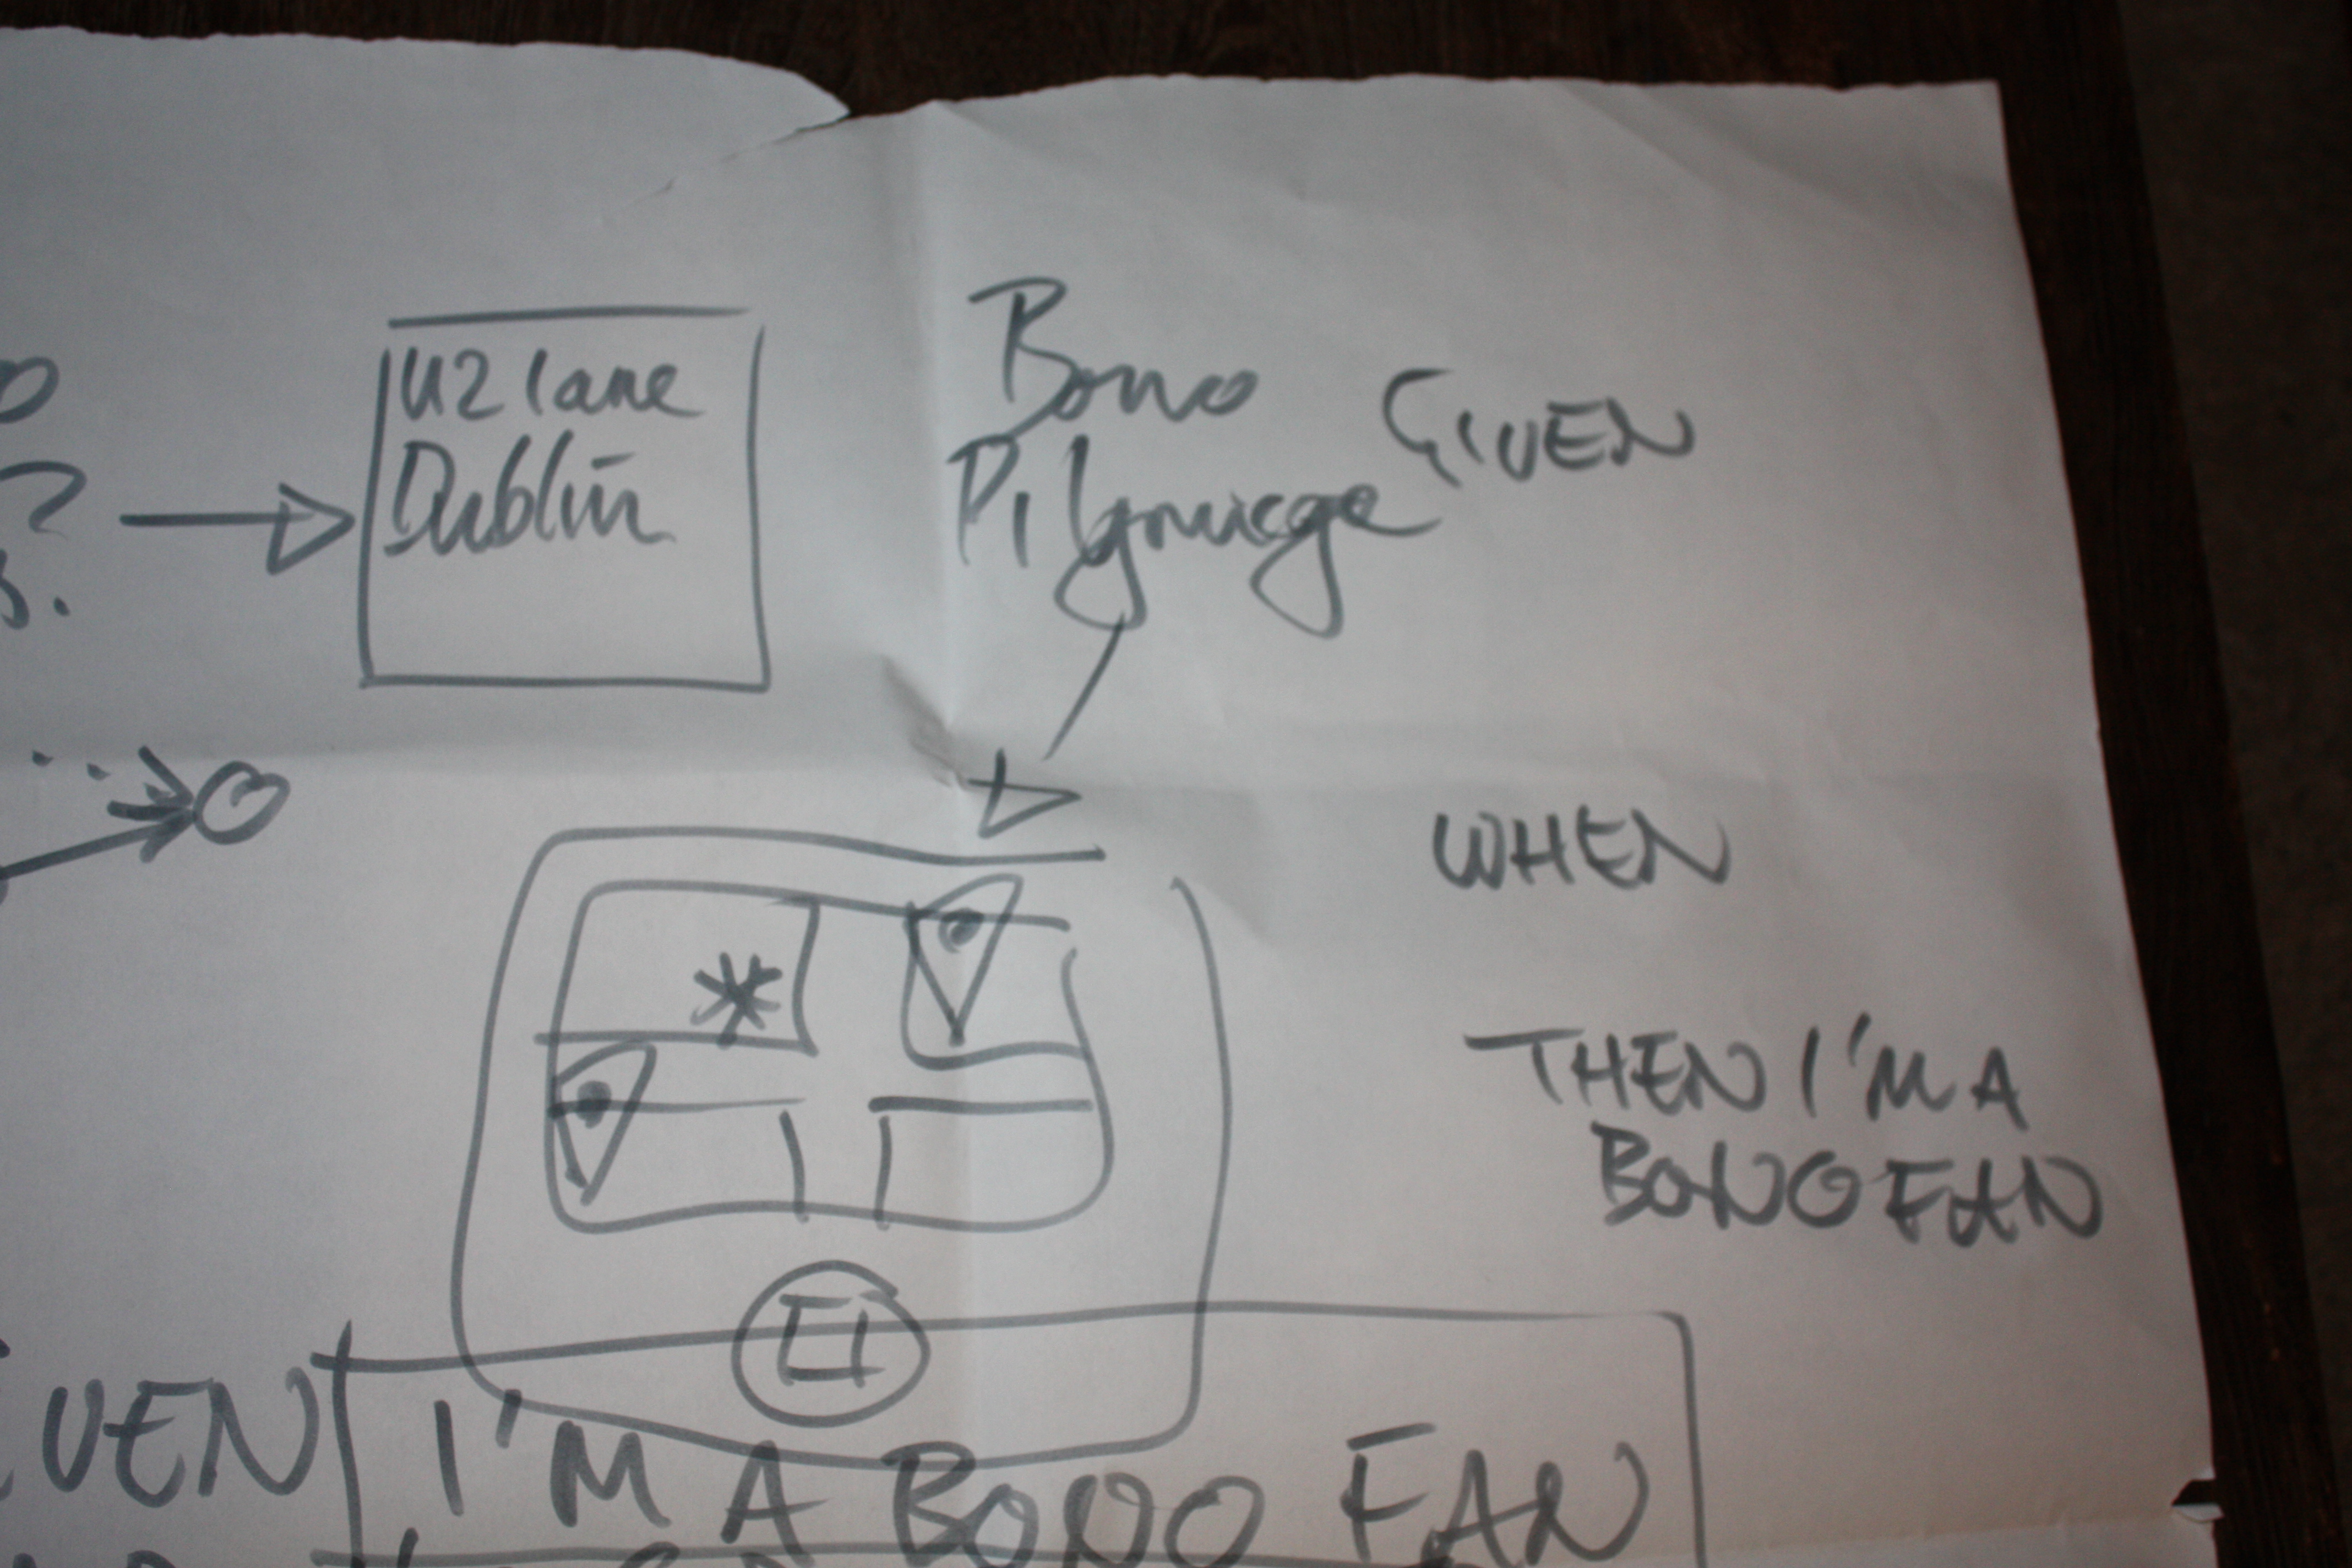 U2 lane
Dublin
Bono
Pilgrimage
GIVEN
WHEN
THEN I'M A
BONO FAN
I'M A BONO FAN